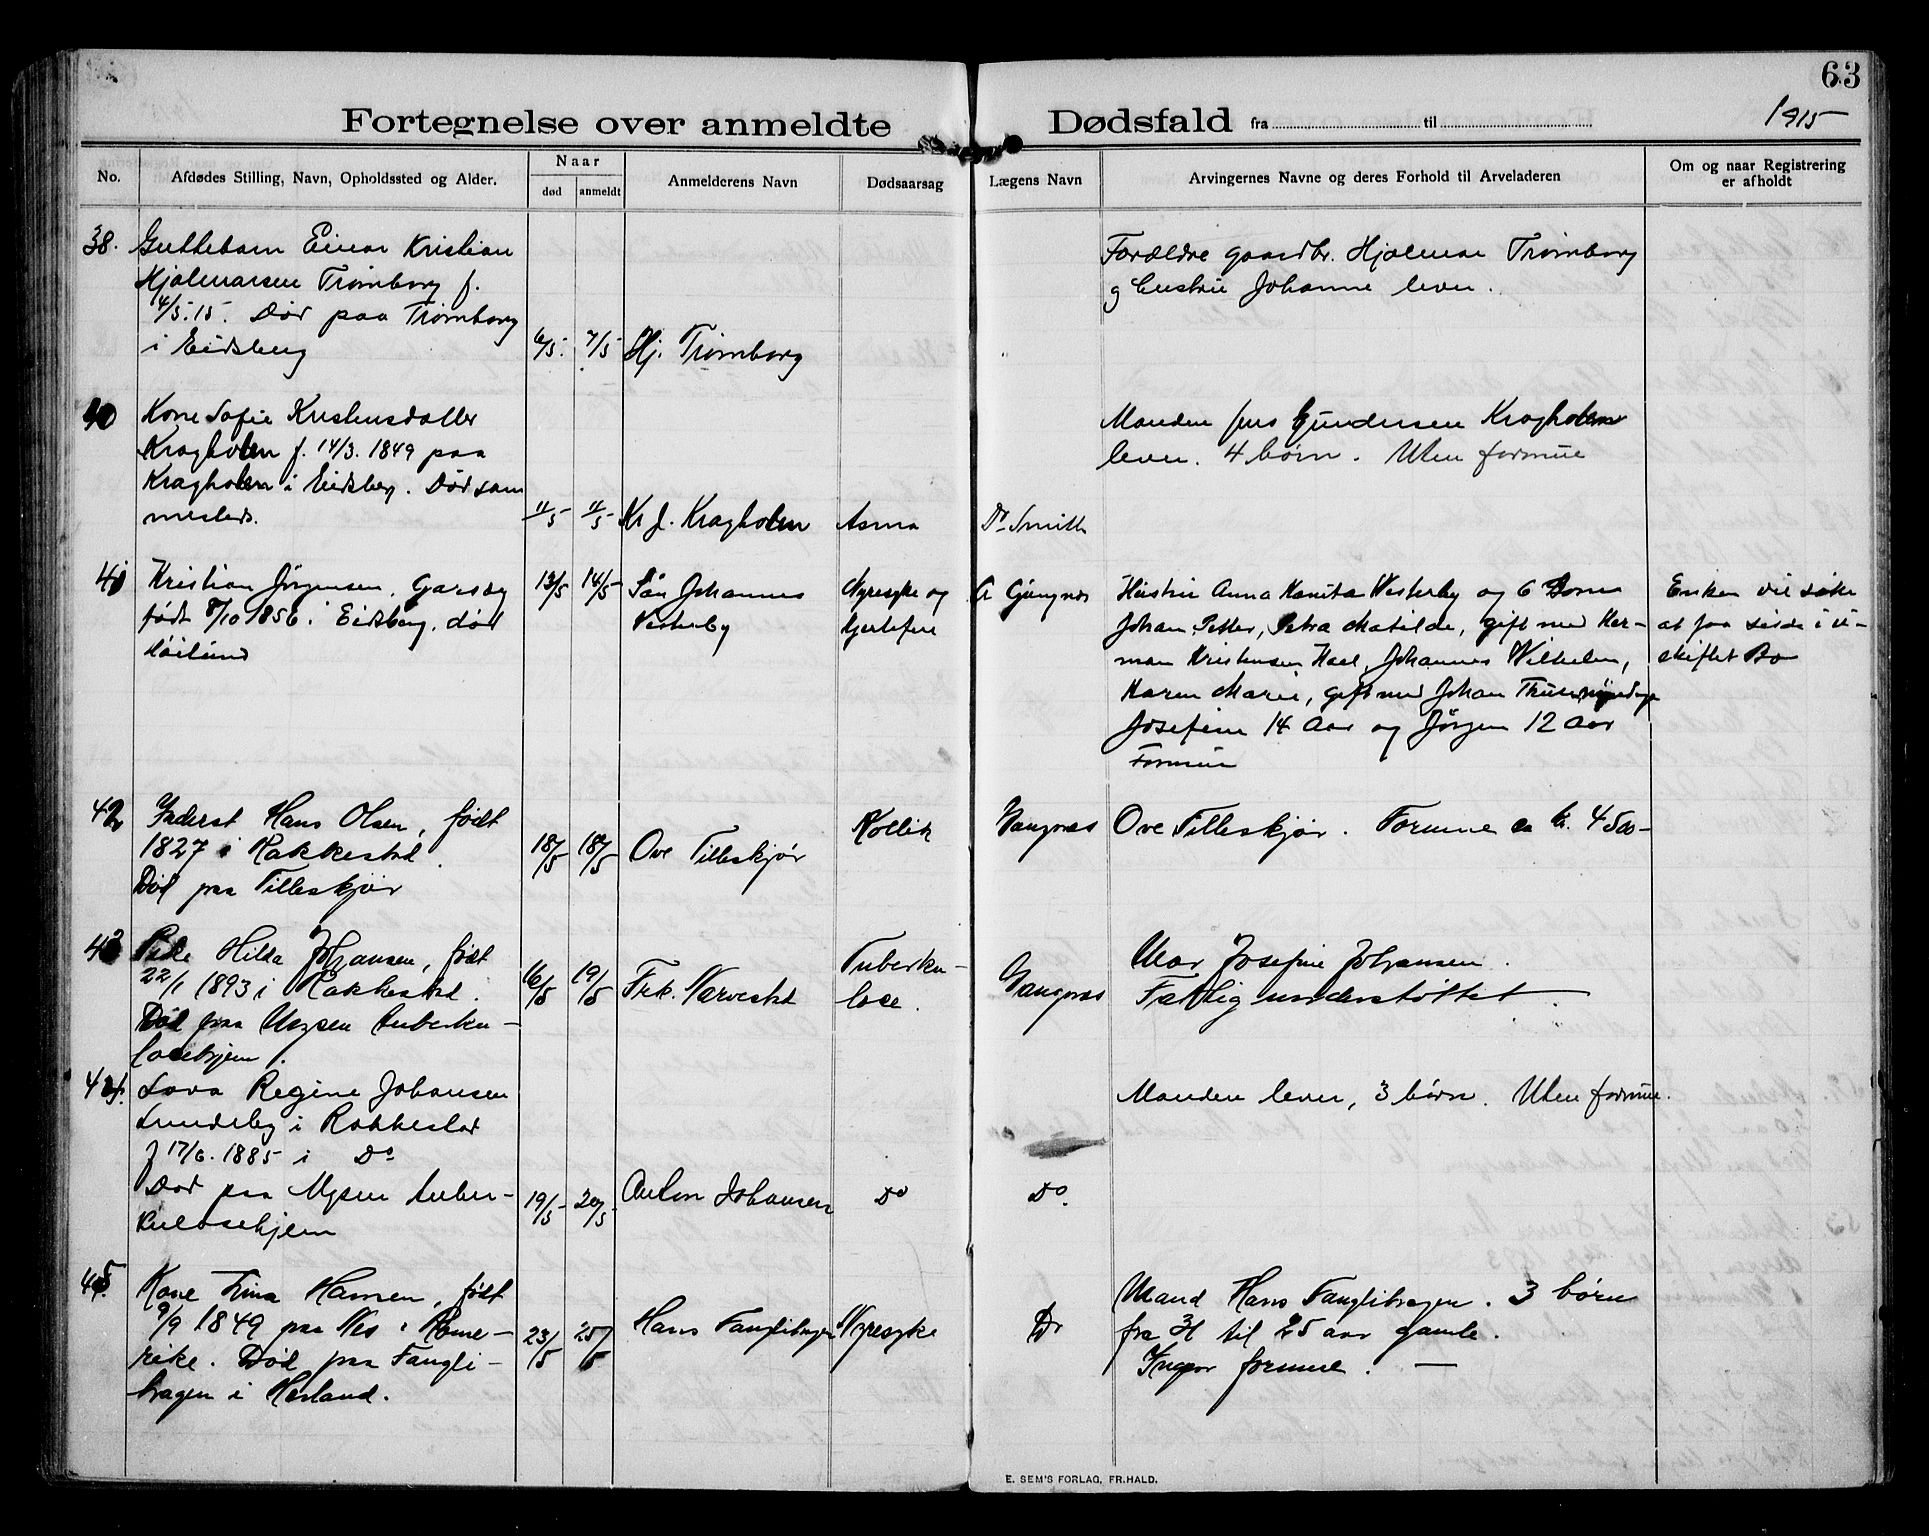 63
Fortegnelse over anmeldte Dødsfald fra til 1915
No. Afdødes Stilling, Navn, Opholdssted og Alder. Naar død anmeldt Anmelderens Navn Dødsaarsag Lægens Navn Arvingernes Navne og deres Forhold til Arveladeren Om og naar Registrering er afholdt
38. Guttebarn Einar Kristian
Hjalmarsen Trømborg f.
4/5.15. Død paa Trømborg
i Eidsberg 6/5. 7/5 Hj. Trømborg
Forældre gaardbr. Hjalmar Trømborg
og hustru Johanne lever.
40 Kone Sofie Kristensdatter
Kragholen f. 14/3. 1849 paa
Kragholen i Eidsberg. Død sam
mesteds. 11/5 11/5 Kr J. Kragholen Asma Dr Smith
Manden Jens Gundersen Kragholen
lever. 4 børn. Uten formue
41 Kristian Jørgensen, Garseg
født 8/10 1856 i Eidsberg, død
13/5 14/5 Søn Johannes
Vesterby
Nyresyke og
hjertefeil
Hustru Anna Vesterby og 6 Born
Johan Petter, Petra Matilde, gift med Her-
man Kristensen Johannes Wilhelm,
Karen Marie, gift med Johan
Josefine 14 Aar og Jørgen 12 Aar
Formue
Enken vil søke
at faa sidde i u-
skiftet Bo
42 Inderst Hans Olsen, født
1827 i Rakkestad.
Død paa Tilleskjør
18/5 18/5 Ove Tilleskjør Kolik Gangnæs Ove Tilleskjør. Formue ca kr. 4500-
43 Pike Hilda Johansen, født
22/1 1893 i Rakkestad.
Død paa Mysen tuberku-
losehjem.
16/5 19/5 Frk. Narvestad Tuberku-
lose. Gangnæs
Mor Josefine Johansen.
Fattigunderstøttet.
44. Lova Regine Johansen
Lundeby i Rakkestad
f 17/6. 1885 i Do
Død paa Mysen tuber-
kulosehjem
19/5 20/5 Anton Johansen Do Do.
Manden lever, 3 børn. Uten formue.
45. Kone Trina Hansen, født
9/9 1849 paa Nes i Rome-
rike. Død paa Fangli-
bragen i Hærland.
23/5 25/5 Hans Fanglibragen Nyresyke Do
Mand Hans Fanglibragen. 3 børn
fra 34 til 25 aar gamle.
Ingen formue. —
E. SEM'S FORLAG, FR.HALD.